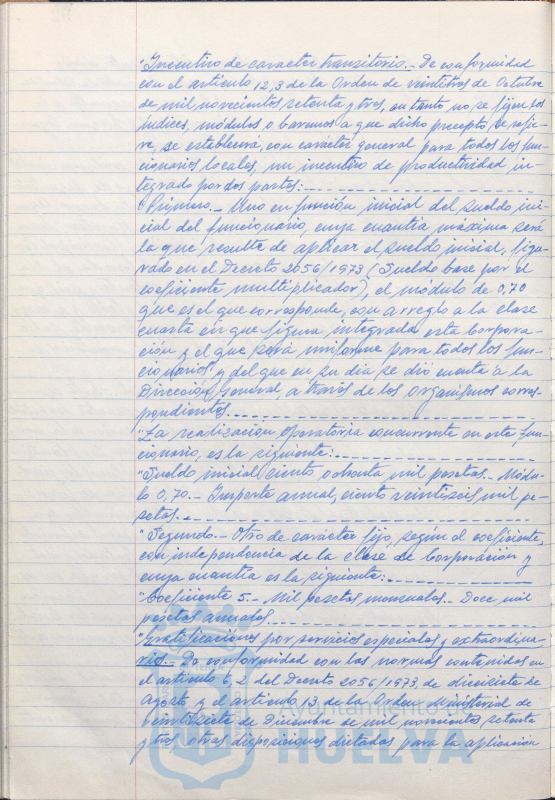 "Incentivo de caracter transitorio.- De conformidad
con el artículo 12,3 de la Orden de veintitres de Octubre
de mil novecientos setenta y tres, en tanto no se fijen los
índices, módulos o baremos a que dicho precepto se refie-
re, se establecerá, con carácter general para todos los fun-
cionarios locales, un incentivo de productividad in-
tegrado por dos partes:
"Primero.- Uno en función inicial del sueldo ini-
cial del funcionario, cuya cuantía máxima será
la que resulte de aplicar el sueldo inicial, figu-
rado en el Decreto 2056/1973 (Sueldo base por el
coeficiente multiplicador), el módulo de 0,70
que es el que corresponde, con arreglo a la clase
cuarta en que figura integrada esta Corpora-
ción y el que será uniforme para todos los fun-
cionarios, y del que en su dia se dió cuenta a la
Dirección General, a través de los organismos corres-
pondientes.
"La realización operatoria concurrente en este fun-
cionario, es la siguiente:
"Sueldo inicial ciento ochenta mil pesetas.- Módu-
lo 0,70.- Importe anual, ciento veintiseis mil pe-
setas.
"Segundo.- Otro de caracter fijo, según el coeficiente,
con independencia de la clase de Corporación y
cuya cuantía es la siguiente:
"Coeficiente 5.- Mil pesetas mensuales.- Doce mil
pesetas anuales.
"Gratificaciones por servicios especiales y extraordina-
rios.- De conformidad con las normas contenidas en
el artículo 6,2 del Decreto 2056/1973, de diecisiete de
Agosto y el artículo 13 de la Orden Ministerial de
veintisiete de Diciembre de mil novecientos setenta
y tres otras disposiciones dictadas para la aplicación
Ayuntamiento de
HUELVA